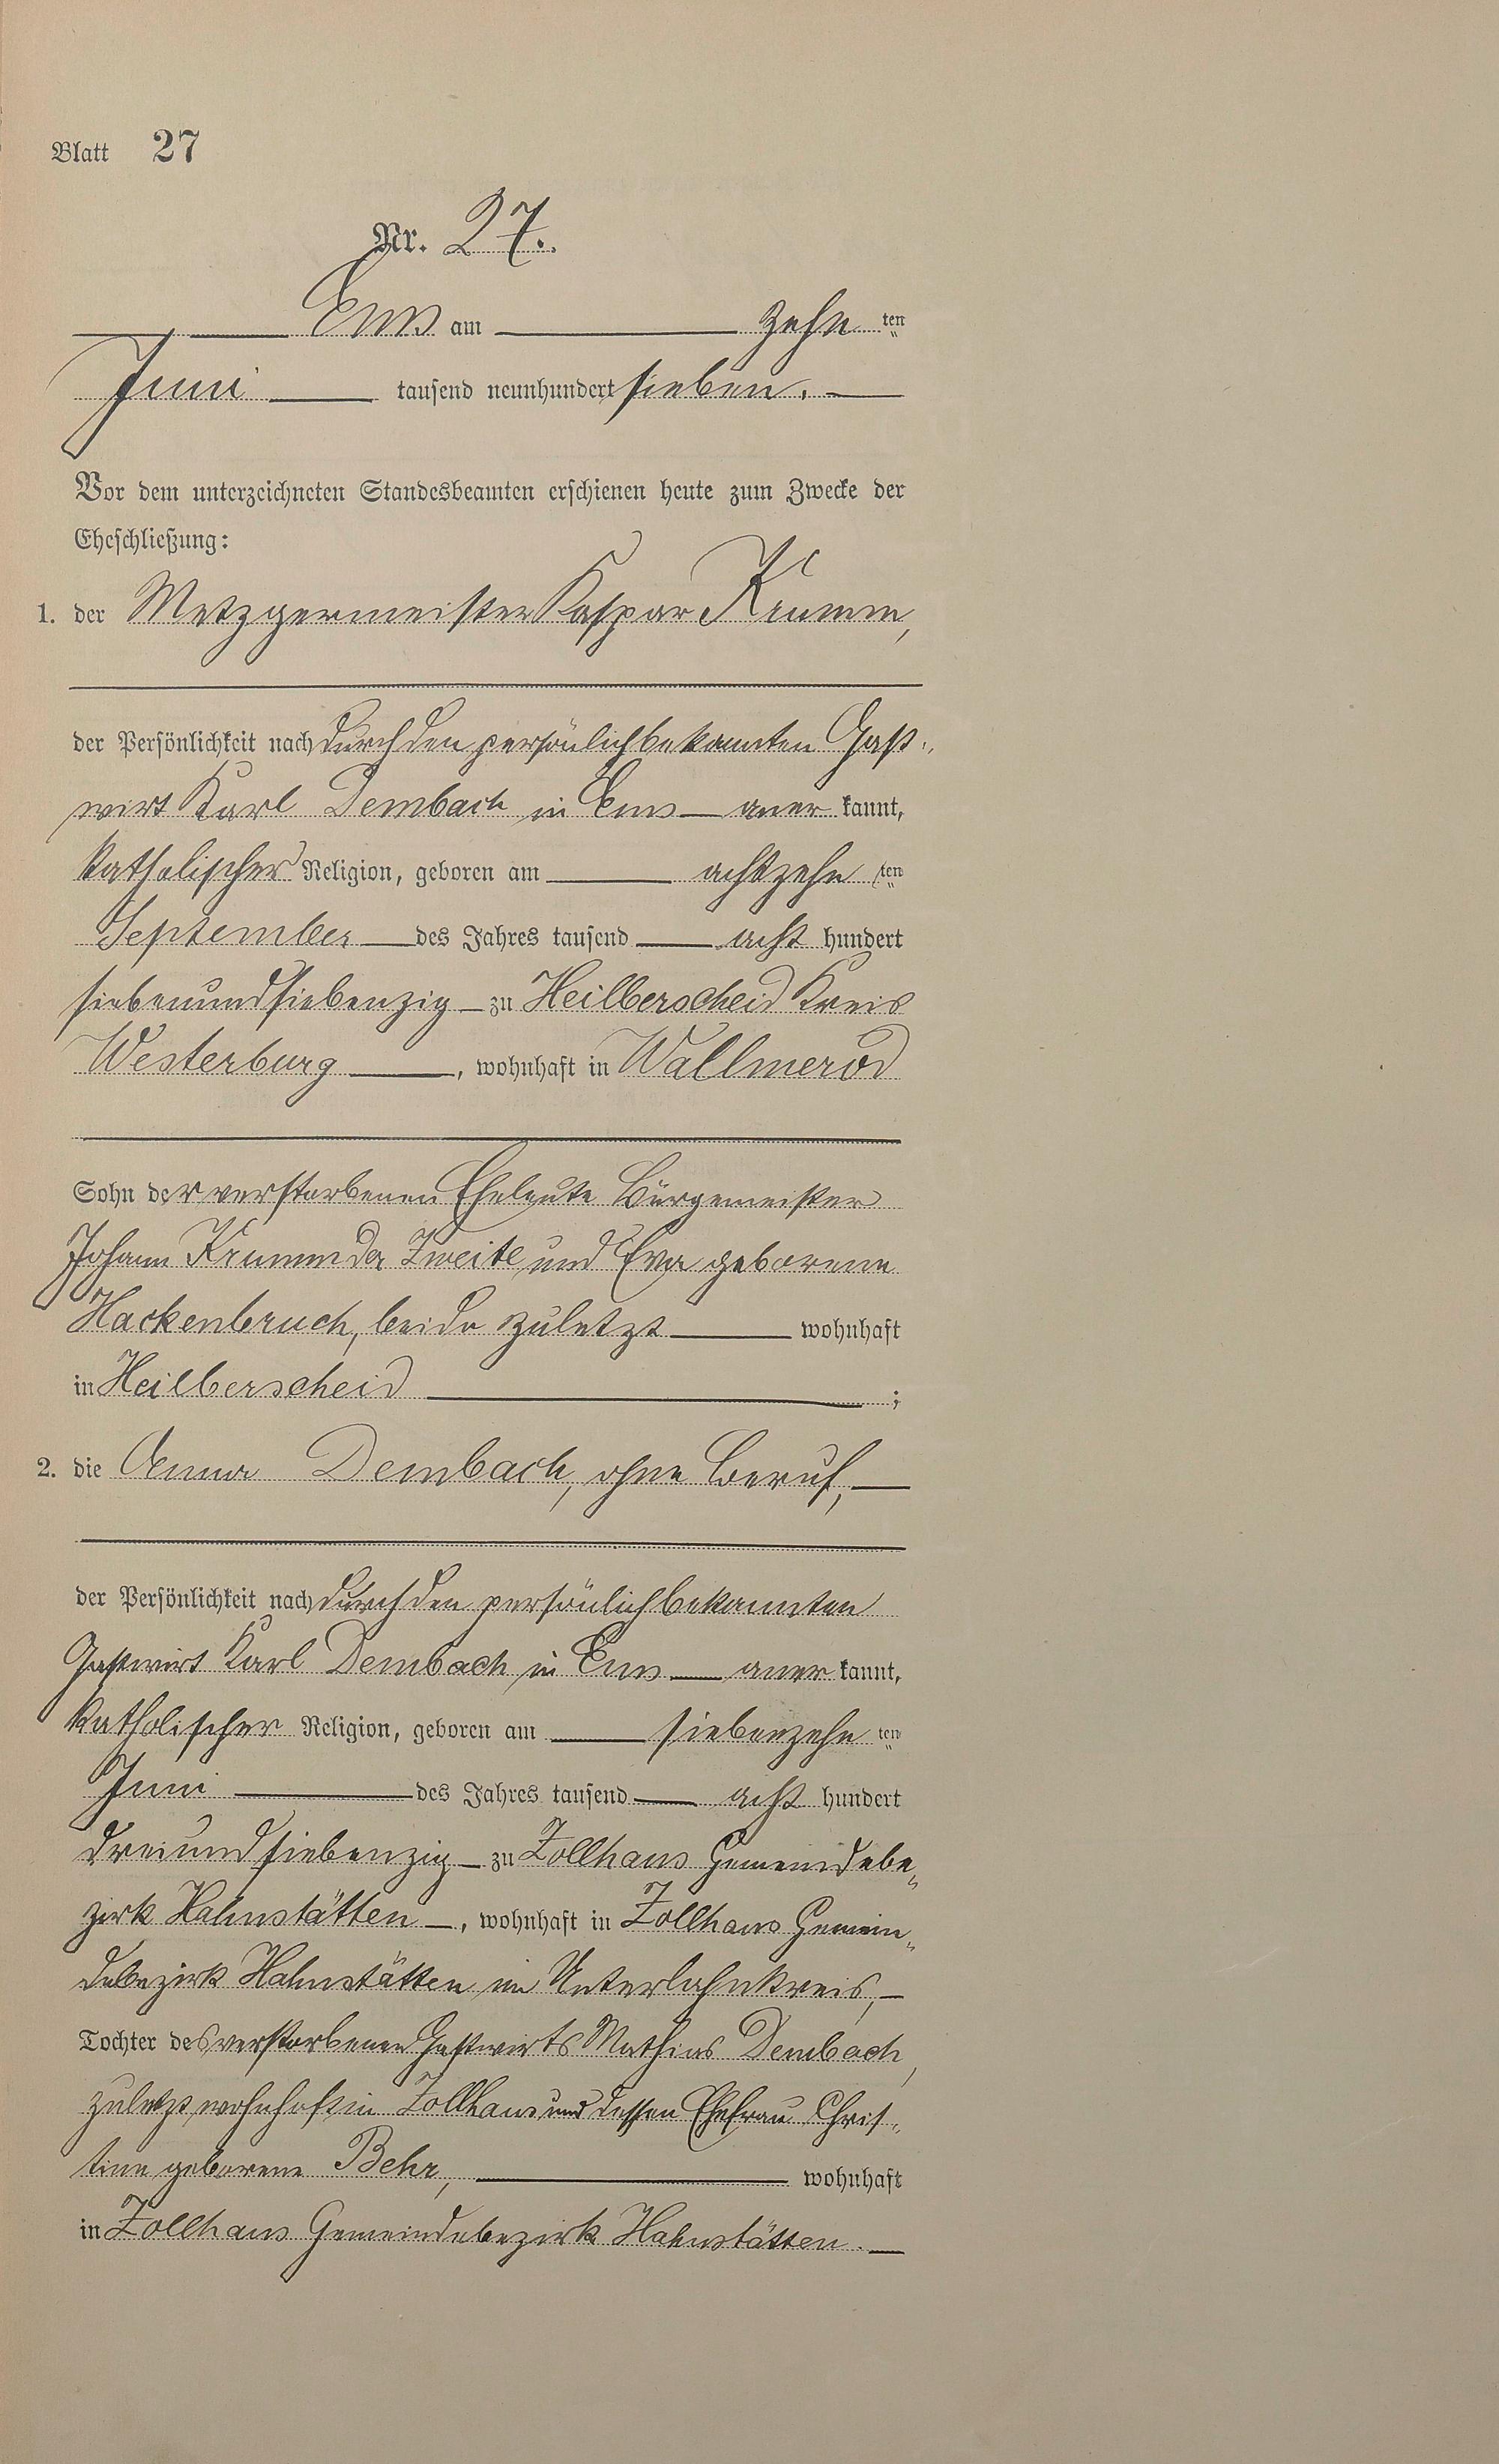 Blatt 27
Nr. 27.
Ems am zehn ten
Juni tausend neunhundert sieben.
Vor dem unterzeichneten Standesbeamten erschienen heute zum Zwecke der
Eheschließung:
1. der Metzgermeister Kaspar Krumm,
der Persönlichkeit nach durch den persönlich bekannten Gast-
wirt Karl Dembach in Ems aner kannt,
katholischer Religion, geboren am achtzehn ten
September des Jahres tausend acht hundert
siebenundsiebenzig zu Heilberscheid Kreis
Westerburg, wohnhaft in Wallmerod
Sohn der verstorbenen Eheleute Bürgemeister
Johann Krumm der Zweite und Eva geborene
Hackenbruch, beide zuletzt wohnhaft
in Heilberscheid;
2. die Anna Dembach, ohne Beruf,
der Persönlichkeit nach durch den persönlich bekannten
Gastwirt Karl Dembach in Ems aner kannt,
katholischer Religion, geboren am siebenzehn ten
Juni des Jahres tausend acht hundert
dreiundsiebenzig zu Zollhaus Gemeindebe-
zirk Hahnstätten, wohnhaft in Zollhaus Gemein-
debezirk Hahnstätten im Unterlahnkreis,
Tochter des verstorbenen Gastwirts Mathias Dembach,
zuletzt wohnhaft in Zollhaus und dessen Ehefrau Chris-
tine geborene Behr, wohnhaft
in Zollhaus Gemeindebezirk Hahnstätten.